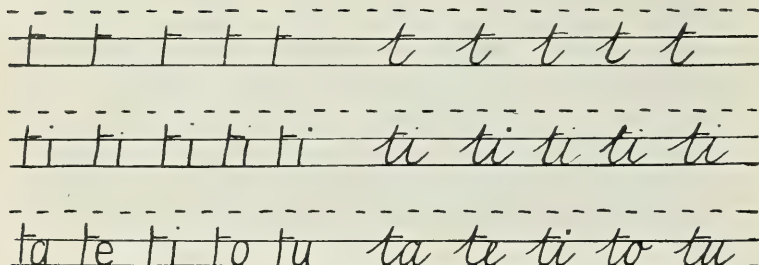 t t t t t t t t t t
ti ti ti ti ti ti ti ti ti ti
ta te ti to tu ta te ti to tu